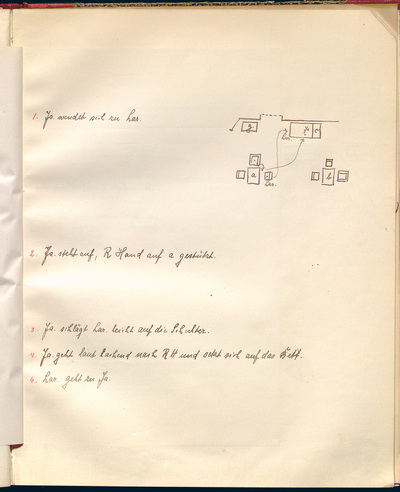 1. Ja. wendet sich zu Lar.
g
c
a
b
Lar.
2. Ja. steht auf, R Hand auf a gestützt.
3. Ja. schlägt Lar. leicht auf die Schulter.
4. Ja. geht laut lachend nach RH und setzt sich auf das Bett.
4. Lar. geht zu Ja.